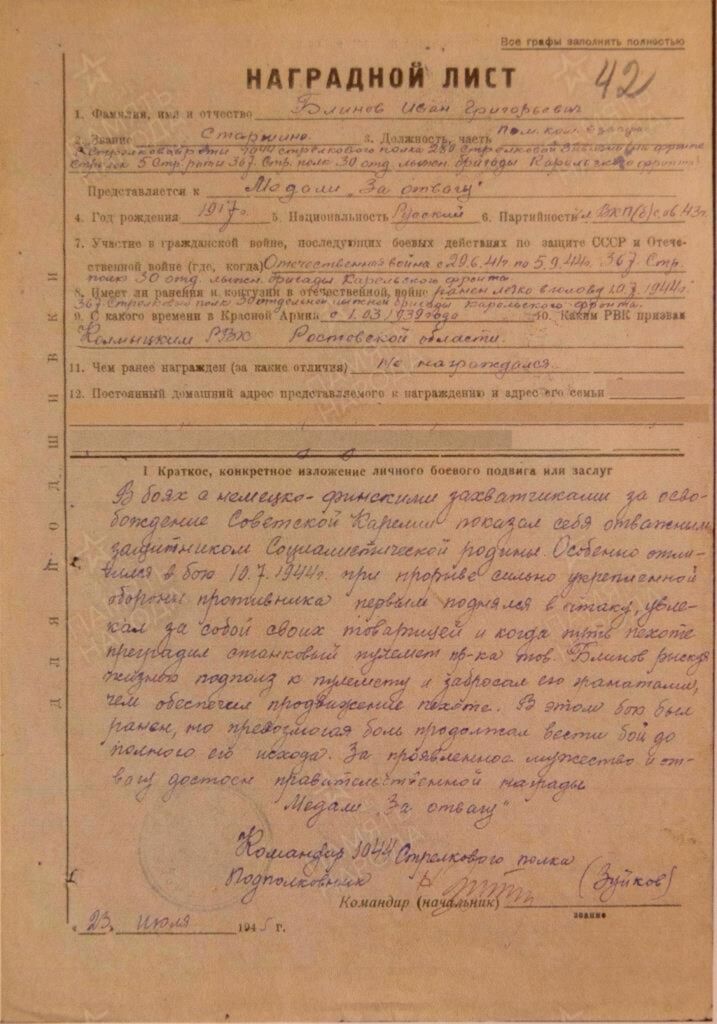 Все графы заполнять полностью
НАГРАДНОЙ ЛИСТ 42
1. Фамилия, имя и отчество Блинов Иван Григорьевич
2. Звание Старшина. 3. Должность, часть пом. ком. взвода
стрелковой роты 1044 стрелкового полка 280 стрелковой дивизии
стрелок 5 стр. роты 367 стр. полк 30 отд. лыжн. бригады Карельского фронта
Представляется к Медали "За отвагу"
4. Год рождения 1917г. 5. Национальность Русский 6. Партийность ВКП(б) с 43г.
7. Участие в гражданской войне, последующих боевых действиях по защите СССР и Отече-
ственной войне (где, когда) Отечественная война с 6.41г по 5.9.44г. 367 Стр.
полк 30 отд. лыжн. бригады Карельского фронта.
8. Имеет ли ранения и контузии в отечественной войне ранен легко в голову 10.7.1944г.
367 Стрелковый полк 30 отдельной лыжной бригады Карельского фронта.
9. С какого времени в Красной Армии с 1.03.1939 года 10. Каким РВК призван
РВК Ростовской области.
11. Чем ранее награжден (за какие отличия) Не награждался.
12. Постоянный домашний адрес представляемого к награждению и адрес его семьи
I Краткое, конкретное изложение личного боевого подвига или заслуг
В боях с немецко-финскими захватчиками за осво-
бождение Советской Карелии показал себя отважным
защитником Социалистической родины. Особенно отли-
чился в бою 10.7.1944г. при прорыве сильно укрепленной
обороны противника первым поднялся в атаку, увле-
кая за собой своих товарищей и когда путь пехоте
преградил станковый пулемет пр-ка тов. Блинов рискуя
жизнью подполз к пулемету и забросал его гранатами,
чем обеспечил продвижение пехоте. В этом бою был
ранен, но превозмогая боль продолжал вести бой до
полного его исхода. За проявленное мужество и от-
вагу достоен правительственной награды
Медали "За отвагу"
Командир 1044 Стрелкового полка
Подполковник (Зуйков)
Командир (начальник)
звание
"23" июля 1945 г.
ДЛЯ ПОДШИВКИ